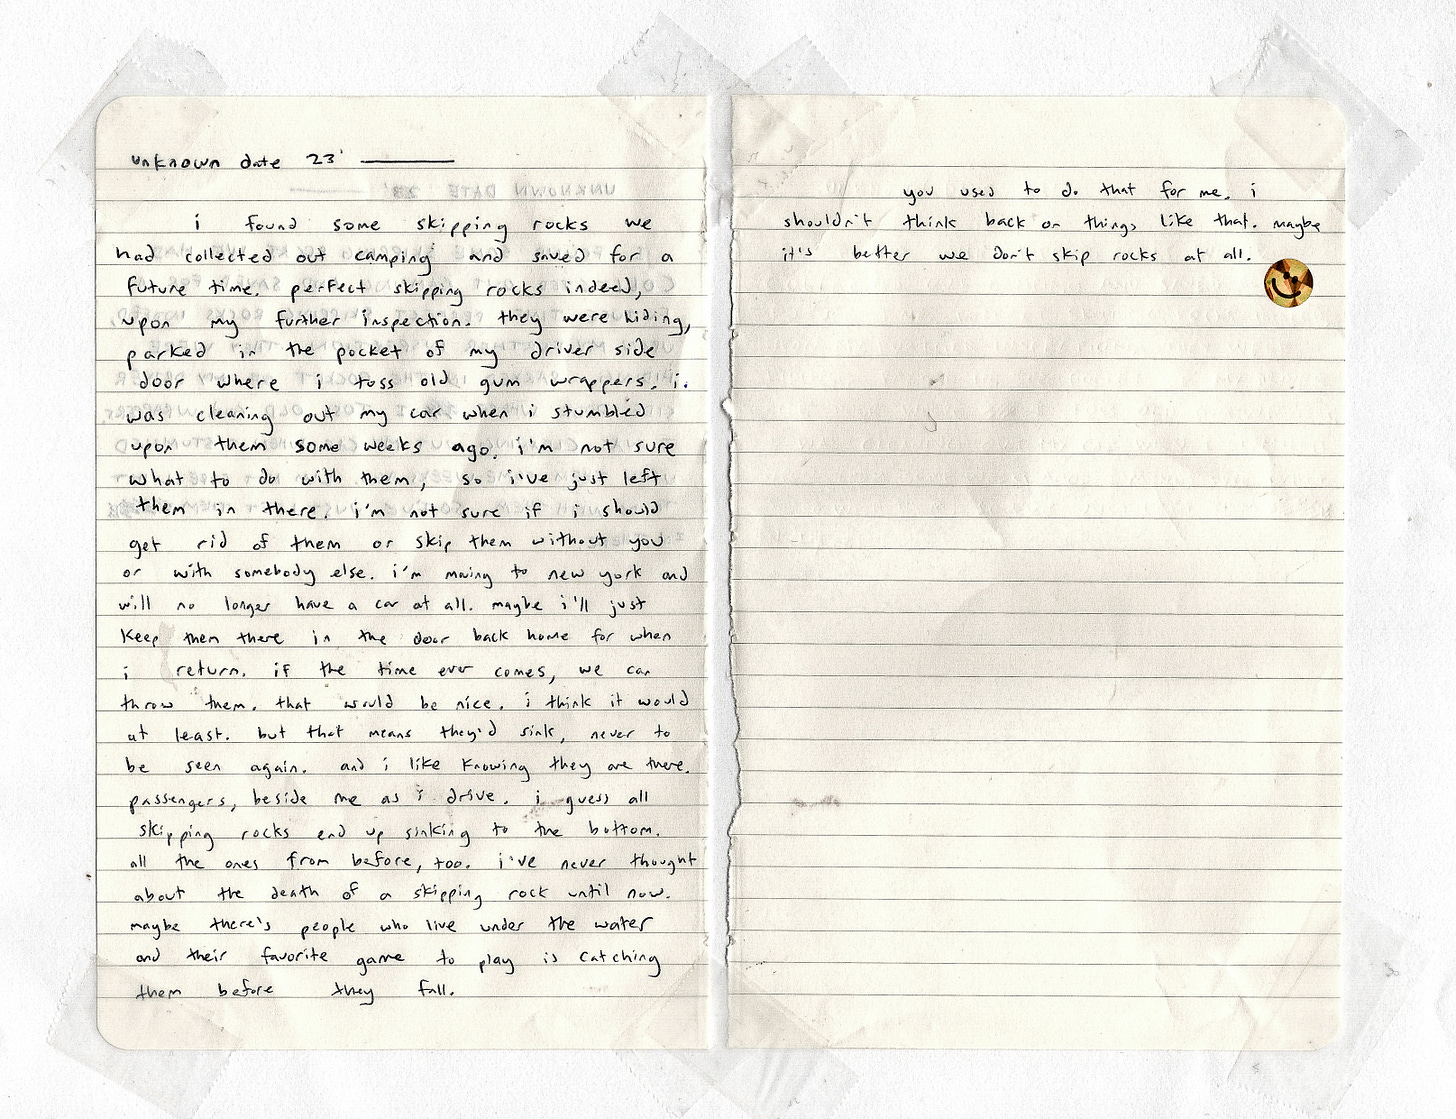 unknown date 23' ———
i found some skipping rocks we
had collected out camping and saved for a
future time. perfect skipping rocks indeed,
upon my further inspection. they were hiding,
parked in the pocket of my driver side
door where i toss old gum wrappers. i
was cleaning out my car when i stumbled
upon them some weeks ago. i'm not sure
what to do with them, so i've just left
them in there. i'm not sure if i should
get rid of them or skip them without you
or with somebody else. i'm moving to new york and
will no longer have a car at all. maybe i'll just
keep them there in the door back home for when
i return. if the time ever comes, we can
throw them. that would be nice. i think it would
at least. but that means they'd sink, never to
be seen again. and i like knowing they are there.
passengers, beside me as i drive. i guess all
skipping rocks end up sinking to the bottom.
all the ones from before, too. i've never thought
about the death of a skipping rock until now.
maybe there's people who live under the water
and their favorite game to play is catching
them before they fall.
you used to do that for me. i
shouldn't think back on things like that. maybe
it's better we don't skip rocks at all.